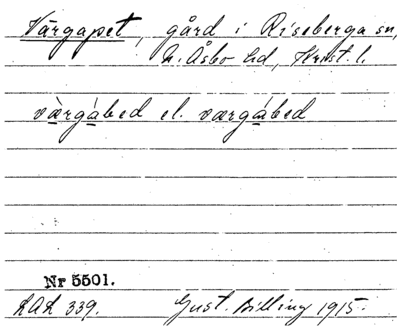 Värgapet, gård i Riseberga sn,
N. Åsbo hd, Krist. l.
värgábed el. værgábed
Nr 5501.
LAL 339. Gust. Billing 1915.